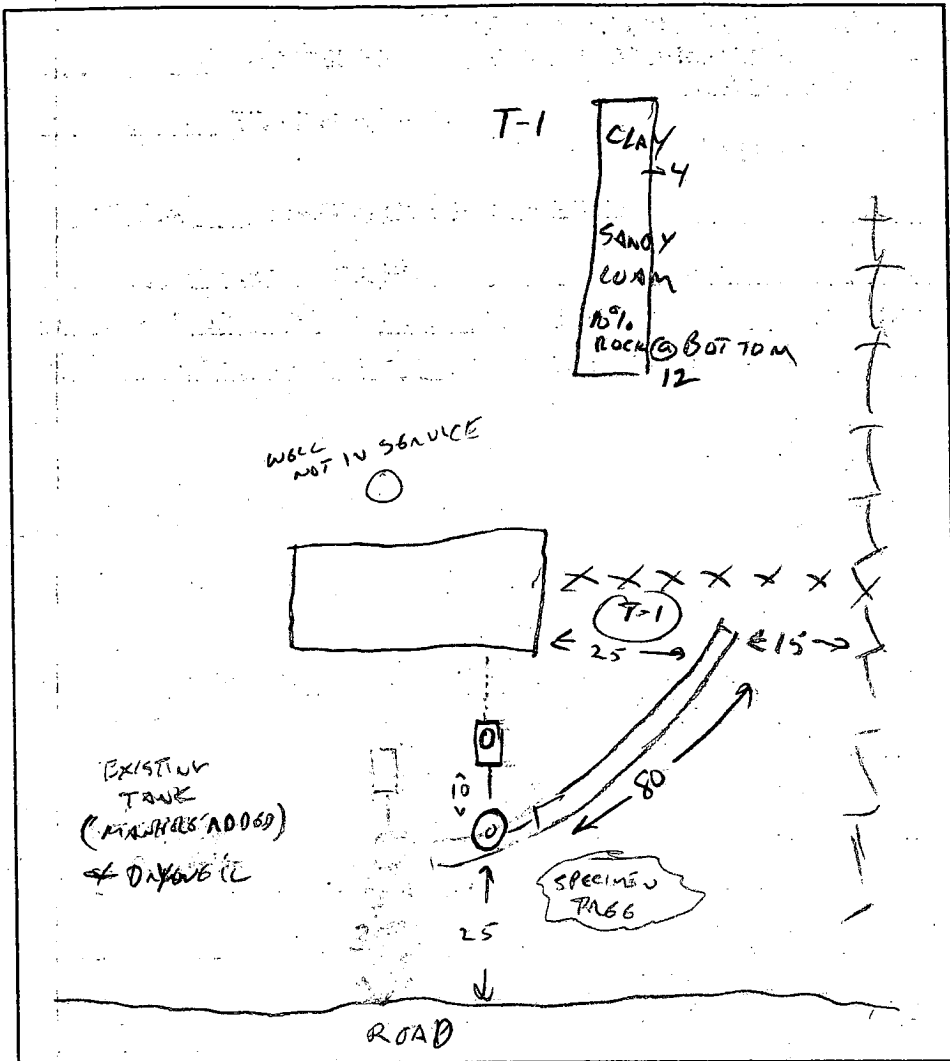 T-1
CLAY
4
SANDY
LOAM
10%
ROCK @ BOTTOM
12
WELL
NOT IN SERVICE
T-1
25
15
80
10
EXISTING
TANK
(MANHOLE ADDED)
& DRYWELL
SPECIMEN
TREE
25
ROAD